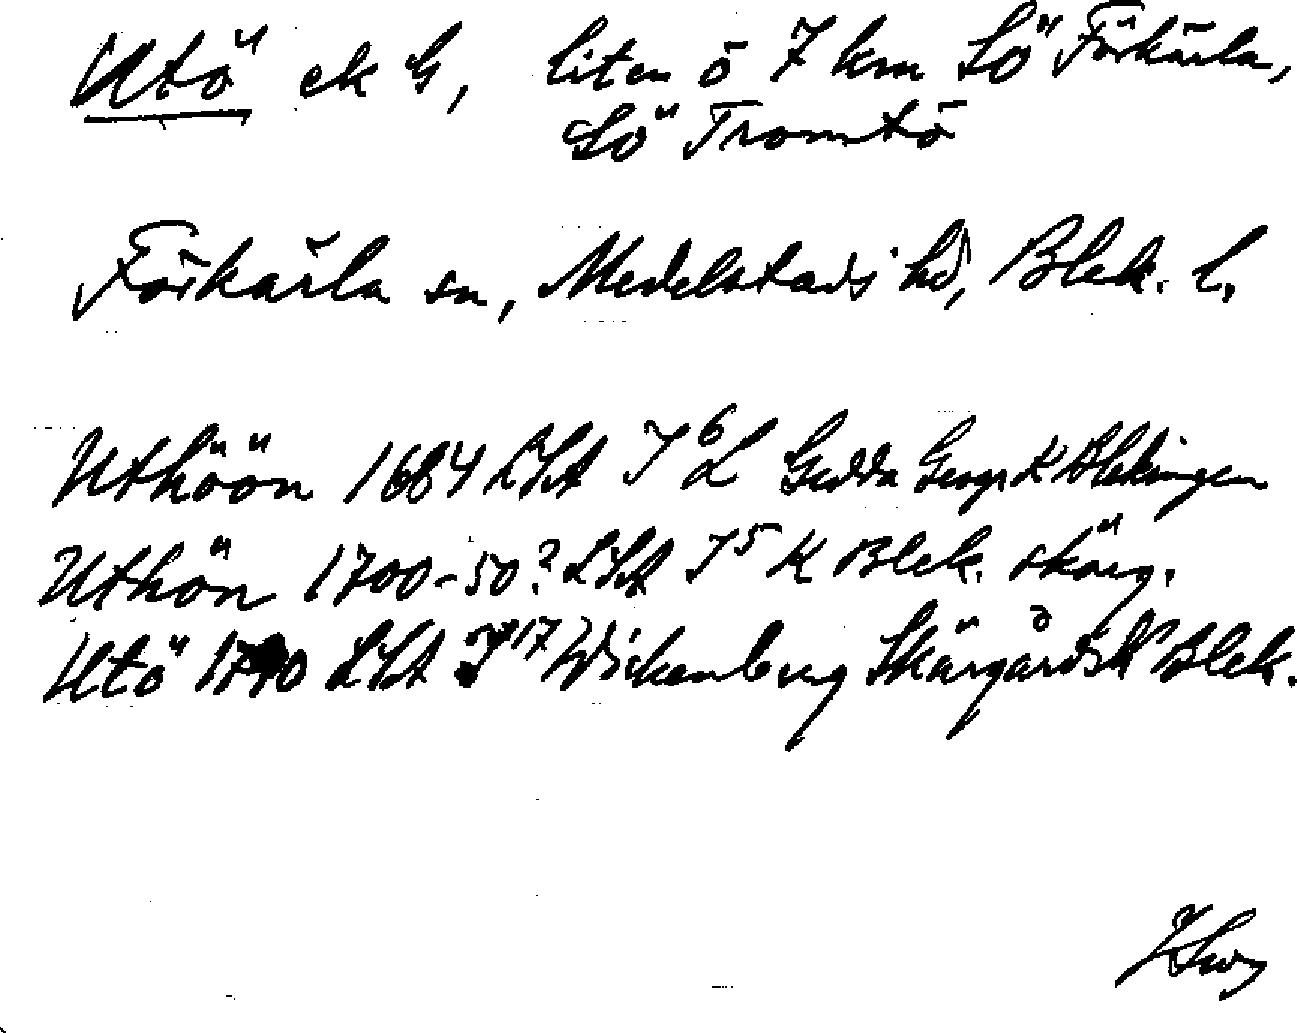 Utö ek G, liten ö 7 km SÖ Förkärla,
SÖ Tromtö
Förkärla sn, Medelstads hd, Blek. l.
Uthöön 1684 LSA I 6 L Gedda Geogr K Blekingen
Uthön 1700-50? LSA I 5 K Blek. skärg.
Utö 1790 LSA I 17 Wickenberg Skärgårds K Blek.